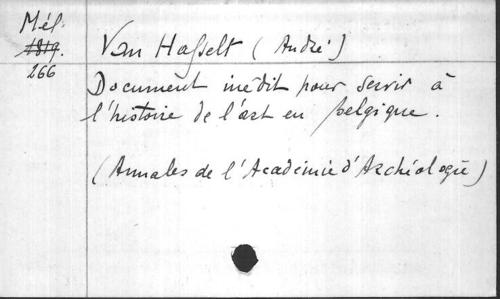 Mél.
1819.
266
Van Hasselt (André)
Document inédit pour servir à
l'histoire de l'art en Belgique.
(Annales de l'Académie d'Archéologie)